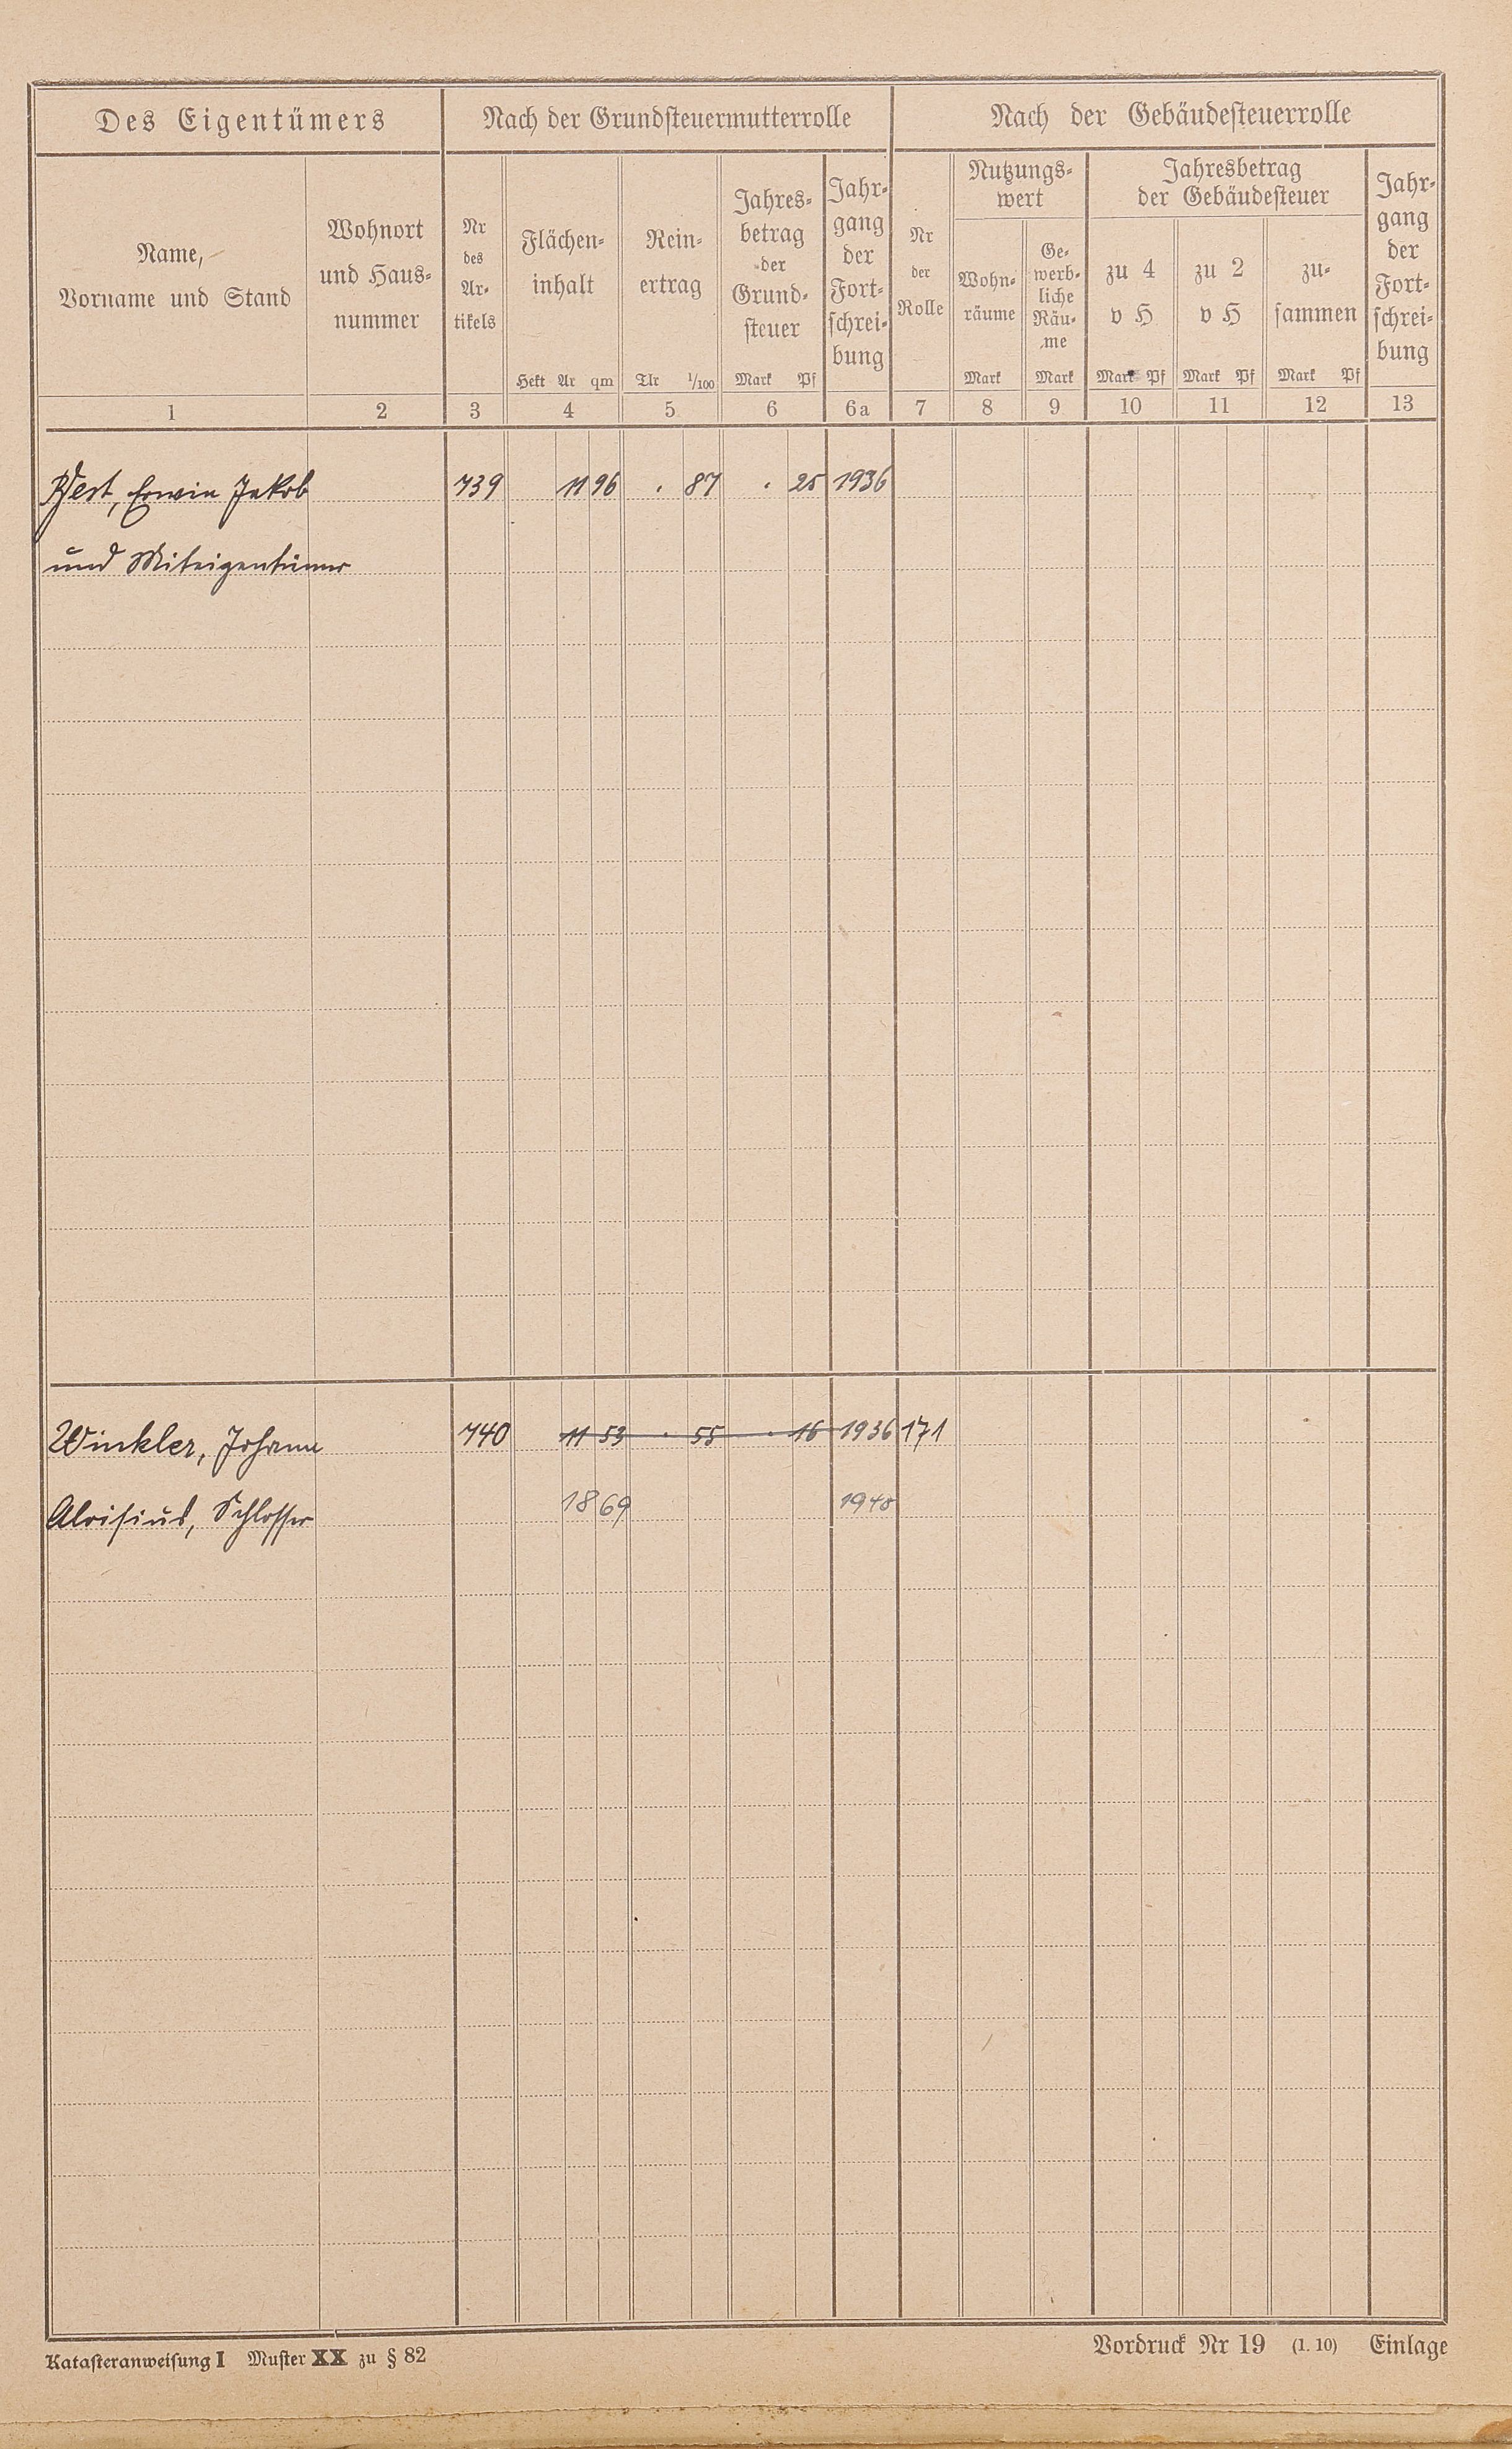 Des Eigentümers Nach der Grundsteuermutterrolle Nach der Gebäudesteuerrolle
Name,
Vorname und Stand
Wohnort
und Haus-
nummer
Nr
des
Ar-
tikels
Flächen-
inhalt
Hekt Ar qm
Rein-
ertrag
Tlr 1/100
Jahres-
betrag
der
Grund-
steuer
Mark Pf
Jahr-
gang
der
Fort-
schrei-
bung
Nr
der
Rolle
Nutzungs-
wert
Wohn-
räume
Mark
Ge-
werb-
liche
Räu-
me
Mark
Jahresbetrag
der Gebäudesteuer
zu 4
v H
Mark Pf
zu 2
v H
Mark Pf
zu-
sammen
Mark Pf
Jahr-
gang
der
Fort-
schrei-
bung
1 2 3 4 5 6 6a 7 8 9 10 11 12 13
Erwin Jakob 739 11 96 . 87 . 25 1936
und Miteigentümer
Winkler, Johann 740 11 53 . 55 . 16 1936 171
Aloisius, Schlosser 18 69 1940
Katasteranweisung I Muster XX zu § 82 Vordruck Nr 19 (1. 10) Einlage